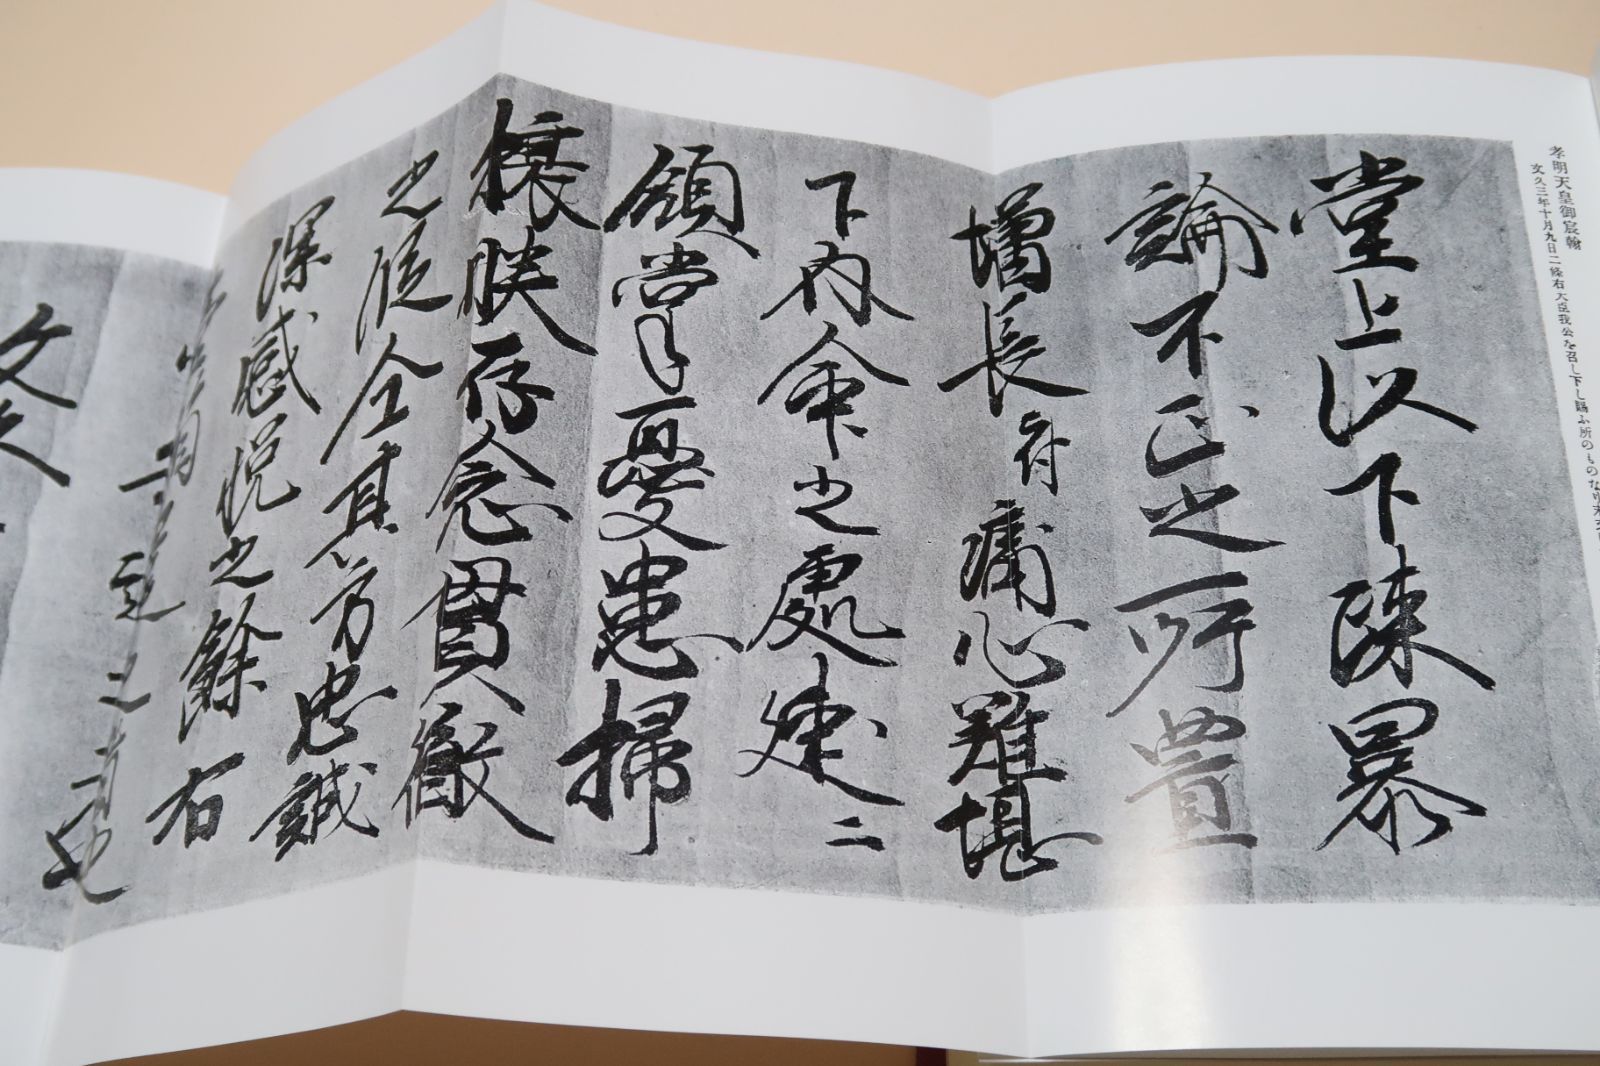 孝明天皇御宸翰
文久三年十月九日二條右大臣我公を召し下し賜ふ所のものなり
堂上以下陳暴
論不正之所置
増長付痛心難堪
下内命之處速ニ
領掌憂患掃
攘朕存念貫徹
之段全其方忠誠
深感悦之餘右
之者也
文久